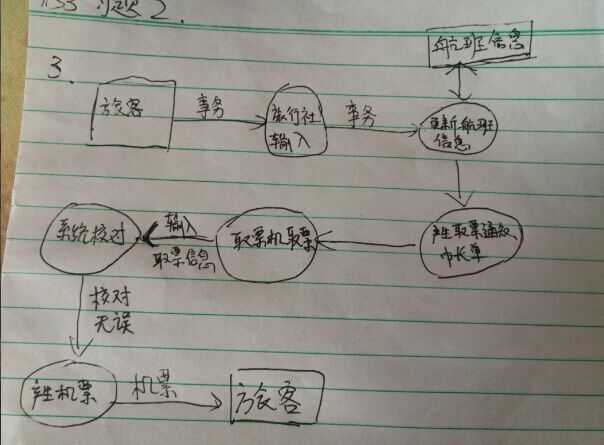 习题2.
航班信息
3.
旅客
事务
旅行社
输入
事务
更新航班
信息
系统核对
输入
取票信息
取票机取票
产生取票通知
巾长单
核对
无误
产生机票
机票
旅客